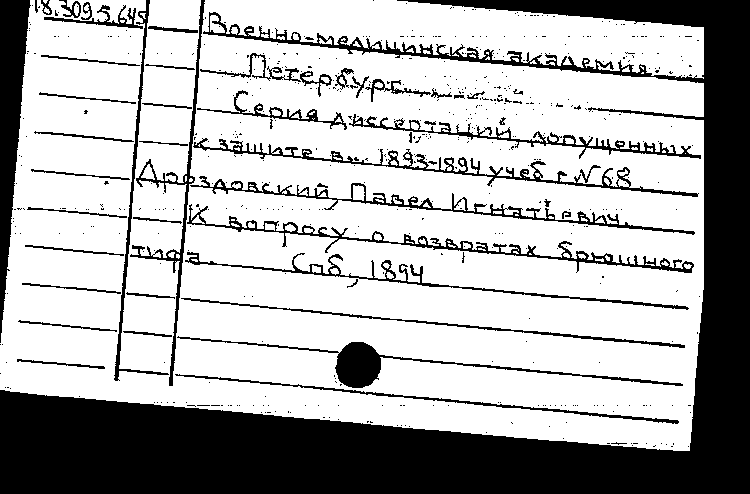 18.309.5.645
Военно-медицинская академия.
Петербург.
Серия диссертаций, допущенных
к защите в... 1893-1894 учеб г. N 68
Дроздовский, Павел Игнатьевич.
К вопросу о возвратах брюшного
тифа. Спб, 1894